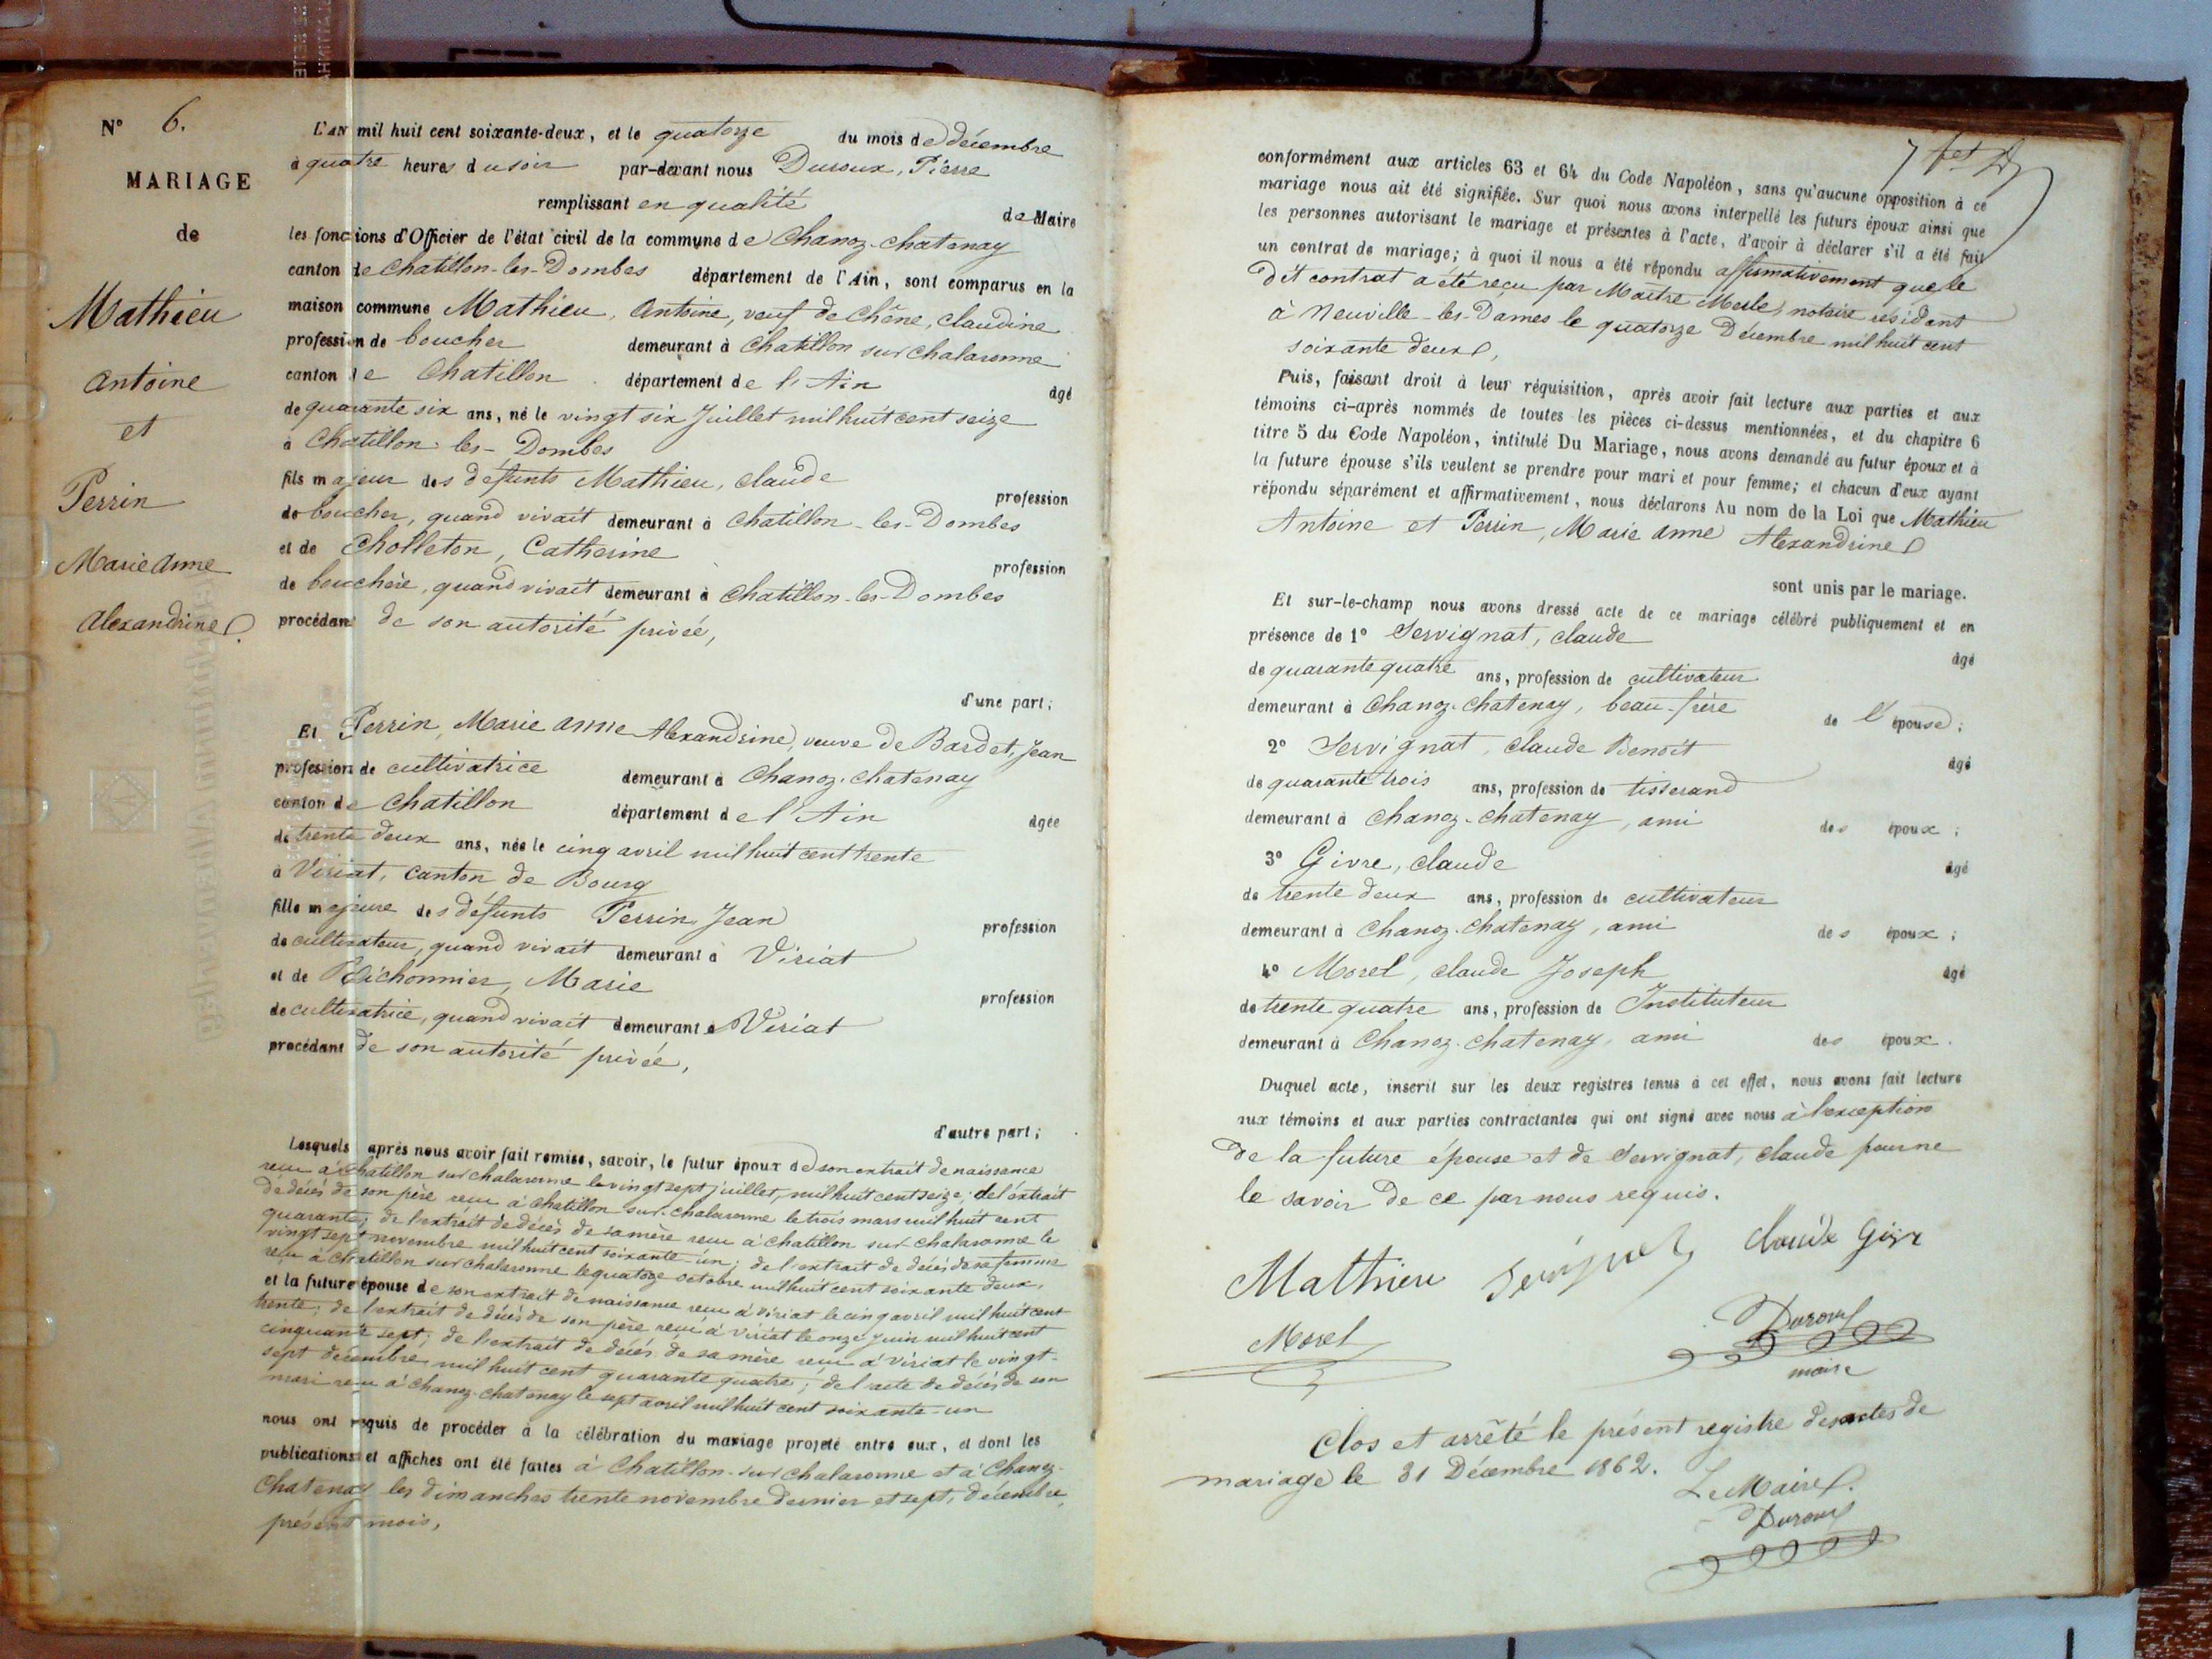 N° 6.
MARIAGE
de
Mathieu
Antoine
et
Perrin
Marie Anne
Alexandrine
L'AN mil huit cent soixante-deux, et le quatorze du mois de décembre
à quatre heures du soir par-devant nous Duroux, Pierre
remplissant en qualité de Maire
les fonctions d'Officier de l'état civil de la commune de Chanoz-Chatenay
canton de Chatillon-les-Dombes département de l'Ain, sont comparus en la
maison commune Mathieu, Antoine, veuf de Chêne, Claudine
profession de boucher demeurant à Chatillon sur Chalaronne
canton de Chatillon département de l'Ain âgé
de quarante six ans, né le vingt six Juillet mil huit cent seize
à Chatillon-les-Dombes
fils majeur des défunts Mathieu, Claude profession
de boucher, quand vivait demeurant à Chatillon-les-Dombes
et de Cholleton, Catherine profession
de bouchère, quand vivait demeurant à Chatillon-les-Dombes
procédant de son autorité privée,
d'une part;
Et Perrin, Marie Anne Alexandrine, veuve de Bardet, Jean
profession de cultivatrice demeurant à Chanoz-Chatenay
canton de Chatillon département de l'Ain âgée
de trente deux ans, née le cinq avril mil huit cent trente
à Viriat, Canton de Bourg
fille majeure des défunts Perrin Jean profession
de cultivateur, quand vivait demeurant à Viriat
et de Marie profession
de cultivatrice, quand vivait demeurant à Viriat
procédant de son autorité privée,
d'autre part;
Lesquels après nous avoir fait remise, savoir, le futur époux de son extrait de naissance
reçu à Chatillon sur Chalaronne le vingt sept juillet, mil huit cent seize; de l'extrait
de décès de son père reçu à Chatillon sur Chalaronne le trois mars mil huit cent
quarante; de l'extrait de décès de sa mère reçu à Chatillon sur Chalaronne le
vingt sept novembre mil huit cent soixante-un; de l'extrait de décès de sa femme
reçu à Chatillon sur Chalaronne le quatorze octobre mil huit cent soixante deux,
et la future épouse de son extrait de naissance reçu à Viriat le cinq avril mil huit cent
trente; de l'extrait de décès de son père reçu à Viriat le onze juin mil huit cent
cinquante sept; de l'extrait de décès de sa mère reçu à Viriat le vingt-
sept décembre mil huit cent quarante quatre; de l'acte de décès de son
mari reçu à Chanoz-Chatenay le sept avril mil huit cent soixante-un
nous ont requis de procéder à la célébration du mariage projeté entre eux, et dont les
publications et affiches ont été faites à Chatillon-sur Chalaronne et à Chanoz-
Chatenay les dimanches trente novembre dernier et sept, décembre,
présent mois,
7
conformément aux articles 63 et 64 du Code Napoléon, sans qu'aucune opposition à ce
mariage nous ait été signifiée. Sur quoi nous avons interpellé les futurs époux ainsi que
les personnes autorisant le mariage et présentes à l'acte, d'avoir à déclarer s'il a été fait
un contrat de mariage; à quoi il nous a été répondu affirmativement que le
dit contrat a été reçu par Maitre notaire résidant
à Neuville-les-Dames le quatorze Décembre mil huit cent
soixante deux,
Puis, faisant droit à leur réquisition, après avoir fait lecture aux parties et aux
témoins ci-après nommés de toutes les pièces ci-dessus mentionnées, et du chapitre 6
titre 5 du Code Napoléon, intitulé Du Mariage, nous avons demandé au futur époux et à
la future épouse s'ils veulent se prendre pour mari et pour femme; et chacun d'eux ayant
répondu séparément et affirmativement, nous déclarons Au nom de la Loi que Mathieu
Antoine et Perrin, Marie Anne Alexandrine
sont unis par le mariage.
Et sur-le-champ nous avons dressé acte de ce mariage célébré publiquement et en
présence de 1° Servignat, Claude âgé
de quarante quatre ans, profession de cultivateur
demeurant à Chanoz-Chatenay, beau-frère de l'épouse;
2° Servignat, Claude Benoit âgé
de quarante trois ans, profession de tisserand
demeurant à Chanoz-Chatenay, ami des époux;
3° Givre, Claude âgé
de trente deux ans, profession de cultivateur
demeurant à Chanoz-Chatenay, ami des époux;
4° Morel, Claude Joseph âgé
de trente quatre ans, profession de Instituteur
demeurant à Chanoz-Chatenay, ami des époux.
Duquel acte, inscrit sur les deux registres tenus à cet effet, nous avons fait lecture
aux témoins et aux parties contractantes qui ont signé avec nous à l'exception
de la future épouse et de Servignat, Claude pour ne
le savoir de ce par nous requis.
Mathieu Claude
Morel Duroux
maire
Clos et arrêté le présent registre des actes de
mariage le 31 Décembre 1862.
Le Maire.
Duroux